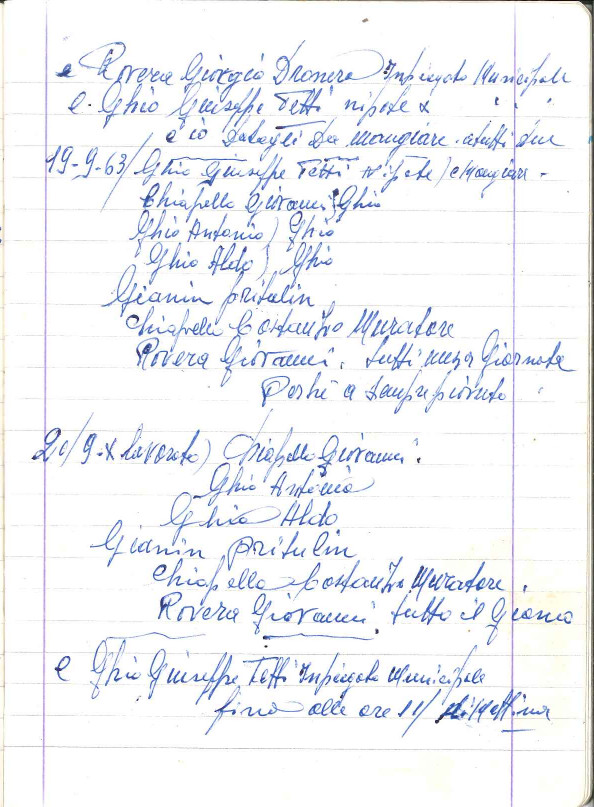 e Rovera Giorgio Dronero Inpiegato Municipale
e. Ghio Giuseppe Tetti nipote & " " "
e io Datogli Da mangiare. atutti due
19-9-63/ Ghio Giuseppe Tetti nipote) e Mangiare -
Chiapello Giovanni) Ghio
Ghio Antonio) Ghio
Ghio Aldo) Ghio
Gianin pritulin
Chiapello Costanzo Muratore
Rovera Giovanni. tutti meza Giornata
Perhé a sempre piovuto "
20/9- lavorato) Chiapello Giovanni.
Ghio Antonio
Ghio Aldo
Gianin pritulin
Chiapello Costanzo Muratore.
Rovera Giovanni tutto il Giorno
e Ghio Giuseppe Tetti Inpiegato Municipale
fino alle ore 11/ di Mattina